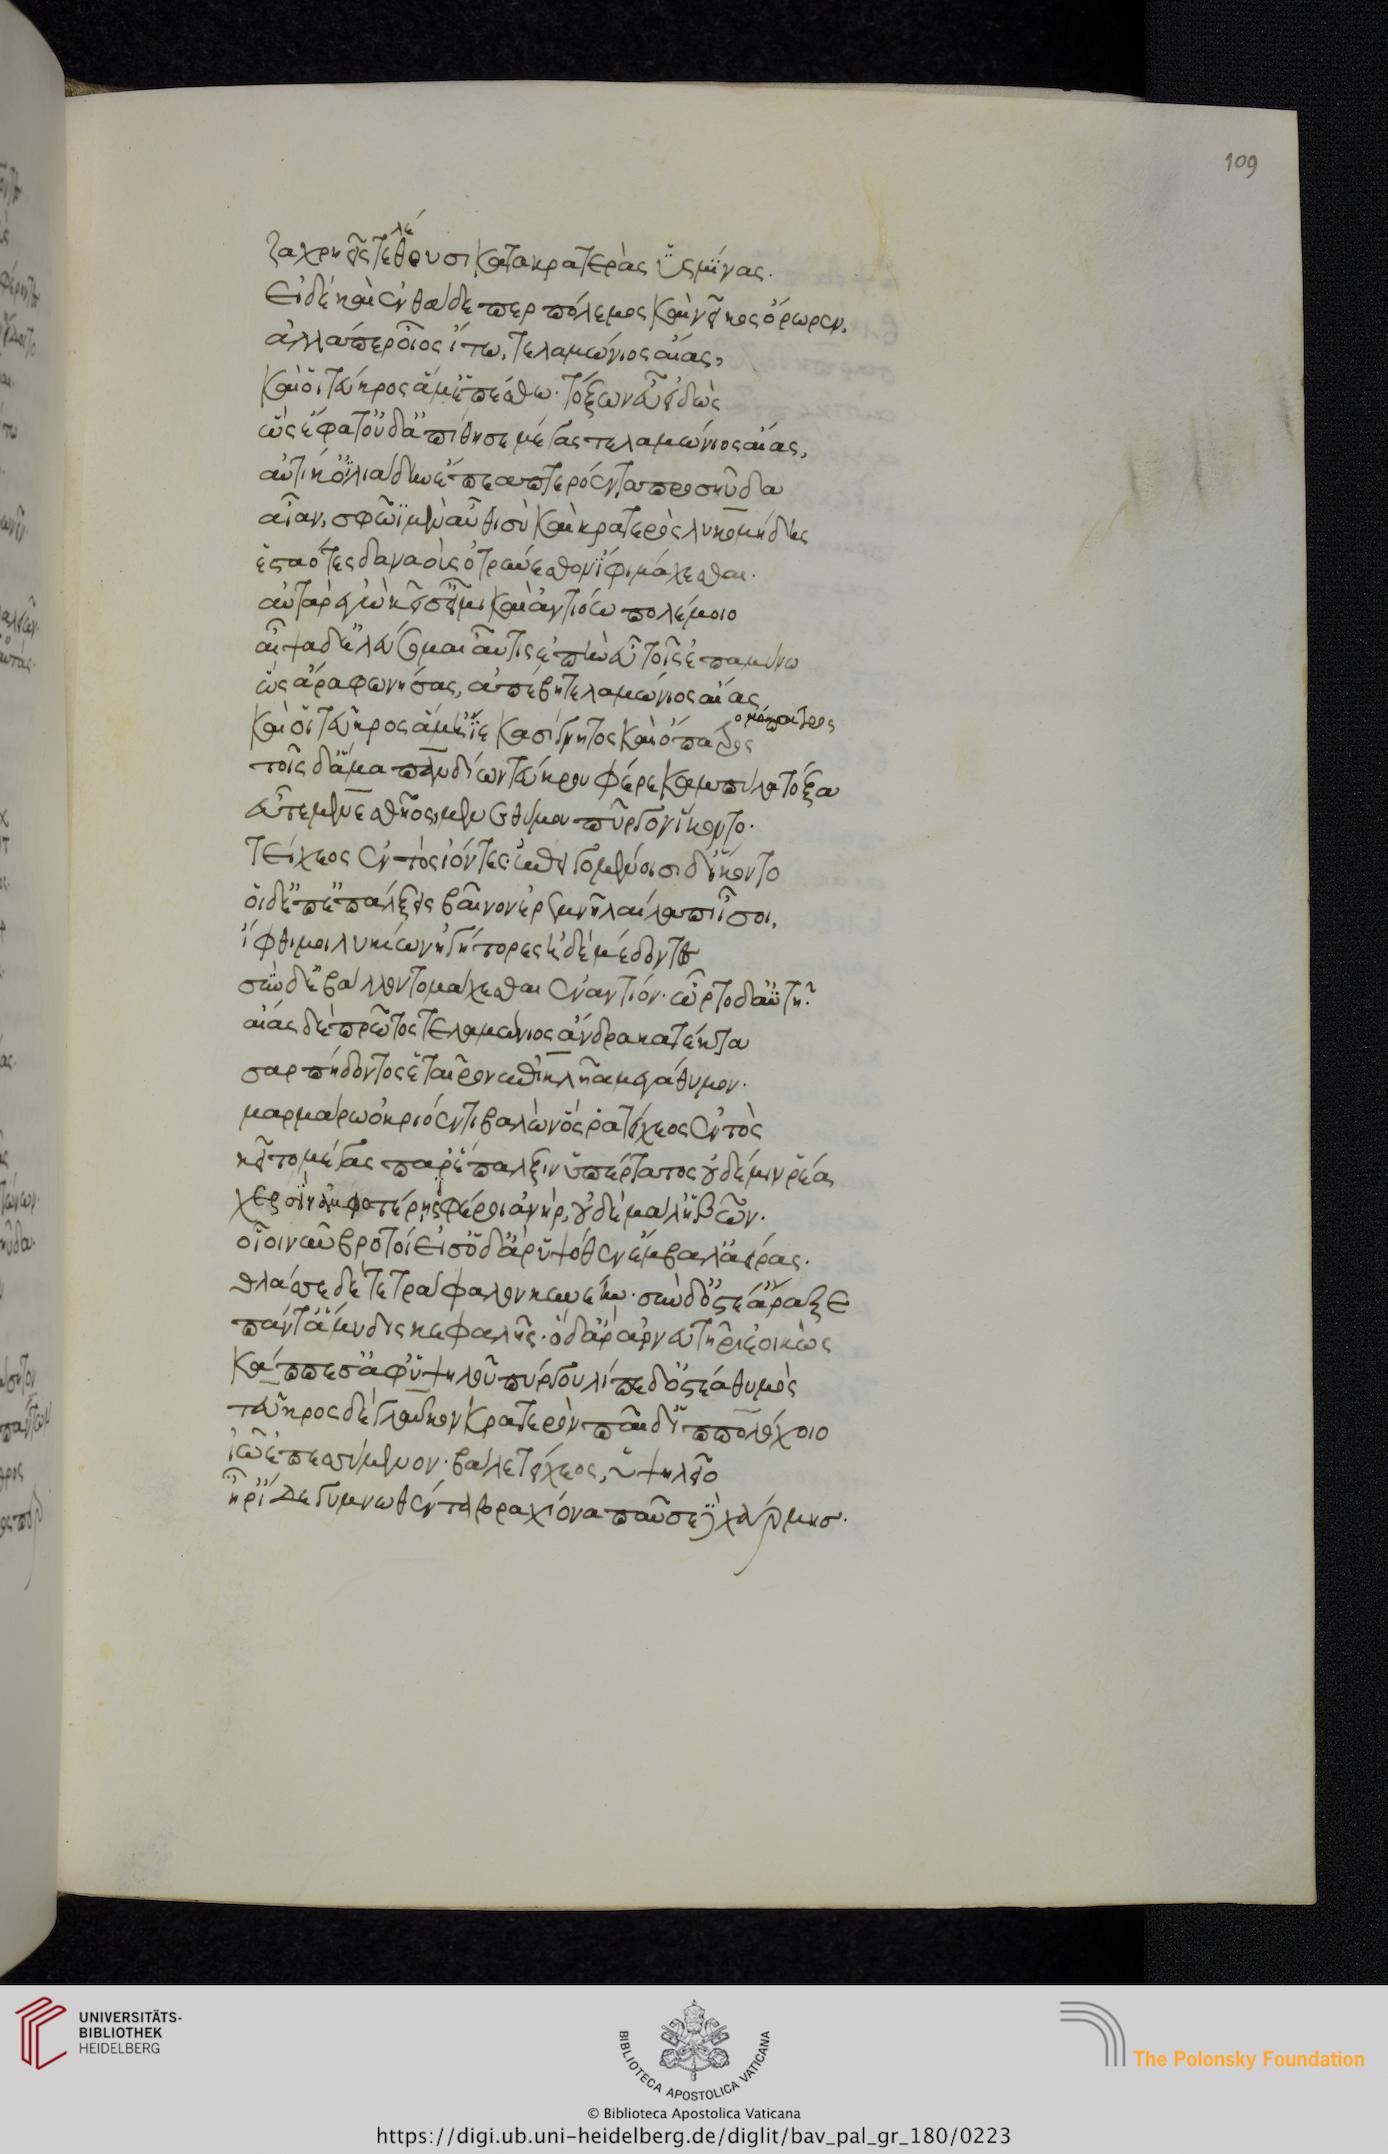 109
ζαχρηεῖς τελέθουσι κατὰ κρατερὰς ὑσμίνας.
εἰ δὲ καὶ ἐνθάδε περ πόλεμος καὶ νεῖκος ὄρωρεν,
ἀλλά περ οἶος ἴτω, τελαμώνιος αἴας,
καὶ οἱ τεῦκρος ἅμ' ἑπέσθω. τόξων εὖ εἰδὼς
ὣς ἔφατ' οὐδ' ἀπίθησε μέγας τελαμώνιος αἴας,
αὐτίκ' ὀϊλιάδην ἔπεα πτερόεντα προσηύδα
αἶαν, σφῶϊ μὲν αὖθι σὺ καὶ κρατερὸς λυκομήδης
ἑσταότες δαναοὺς ὀτρύνεσθον ἶφι μάχεσθαι.
αὐτὰρ ἐγὼ κεῖσ' εἶμι καὶ ἀντιόω πολέμοιο
αἶψα δ' ἐλεύσομαι αὖτις ἐπὴν εὖ τοῖς ἐπαμύνω
ὣς ἄρα φωνήσας, ἀπέβη τελαμώνιος αἴας
καί οἱ τεῦκρος ἅμ' ᾔϊε κασίγνητος καὶ ὄπατρος
ὁμόπατρος
τοῖς δ' ἅμα πανδίων τεύκρου φέρε καμπύλα τόξα
εὖτε μενεσθῆος μεγαθύμου πύργον ἵκοντο.
τείχεος ἐντὸς ἰόντες ἐπειγομένοισι δ' ἵκοντο
οἱ δ' ἐπ' ἐπάλξεις βαῖνον ἐρεμνῇ λαίλαπι ἶσοι,
ἴφθιμοι λυκίων ἡγήτορες ἠδὲ μέδοντες
σὺν δ' ἐβάλλοντο μάχεσθαι ἐναντίον. ὦρτο δ' ἀϋτή.
αἴας δὲ πρῶτος τελαμώνιος ἄνδρα κατέκτα
σαρπήδοντος ἑταῖρον ἐπικλῆα μεγάθυμον.
μαρμάρω ὀκριόεντι βαλὼν ὅς ῥα τείχεος ἐντὸς
κεῖτο μέγας παρ' ἔπαλξιν ὑπέρτατος οὐδέ μιν ῥέα
χερσὶν ἀμφοτέρης φέροι ἀνὴρ, οὐδὲ μάλ' ἡβῶν.
οἷοι νῦν βροτοί εἰσ' ὁ δ' ἄρ' ὑψόθεν ἔμβαλ' ἀείρας.
θλάσσε δὲ τετράφαλον κυνέην. σὺν δ' ὀστέ' ἄραξε
πάντ' ἄμυδις κεφαλῆς. ὁ δ' ἄρ' ἀρνευτῆρι ἐοικὼς
κάππεσ' ἀφ' ὑψηλοῦ πύργου λίπε δ' ὀστέα θυμὸς
τεῦκρος δὲ γλαῦκον κρατερὸν παῖδ' ἱππολόχοιο
ἰῶ ἐπεσσύμενον. βάλε τείχεος, ὑψηλοῖο
ἧ ῥ' ἴδε γυμνωθέντα βραχίονα παῦσε δὲ χάρμης.
UNIVERSITÄTS-
BIBLIOTHEK
HEIDELBERG
BIBLIOTECA APOSTOLICA VATICANA
The Polonsky Foundation
© Biblioteca Apostolica Vaticana
https://digi.ub.uni-heidelberg.de/diglit/bav_pal_gr_180/0223